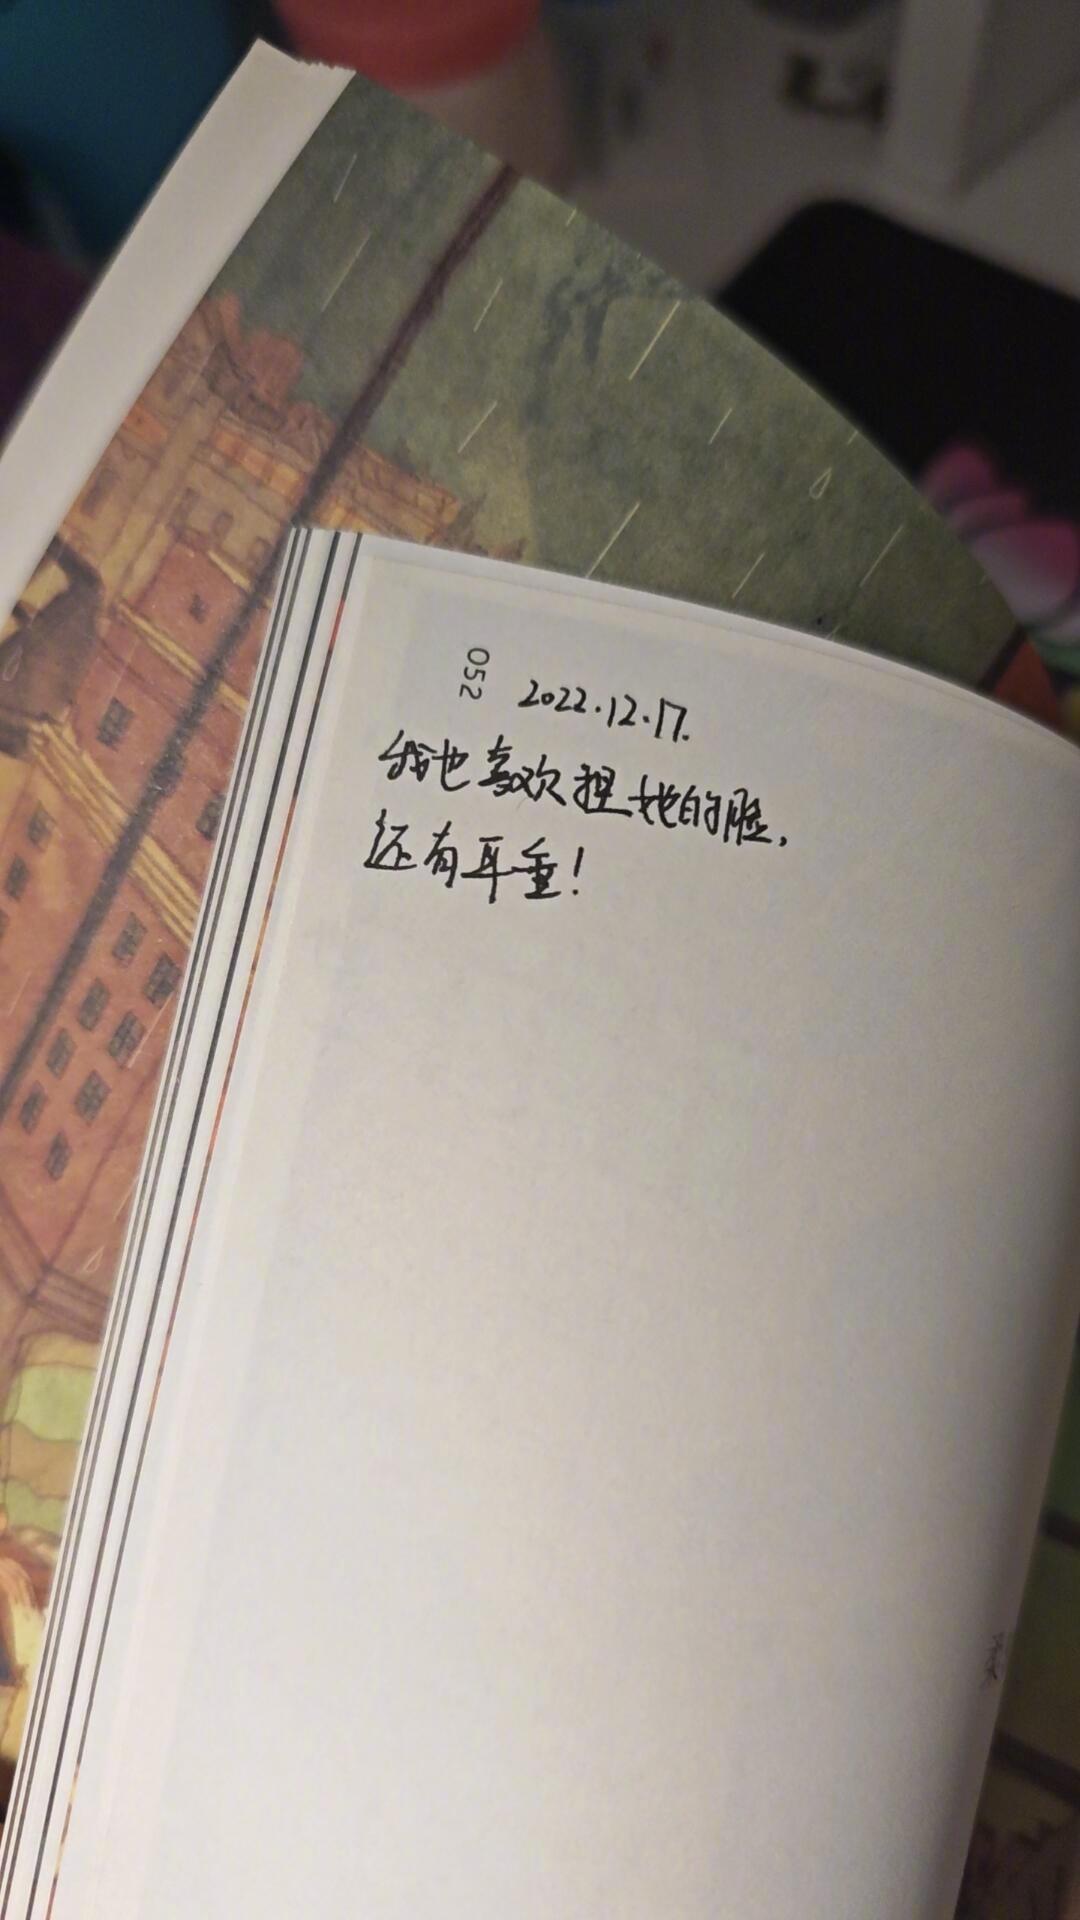 052
2022.12.17.
我也喜欢捏她的脸,
还有耳垂!